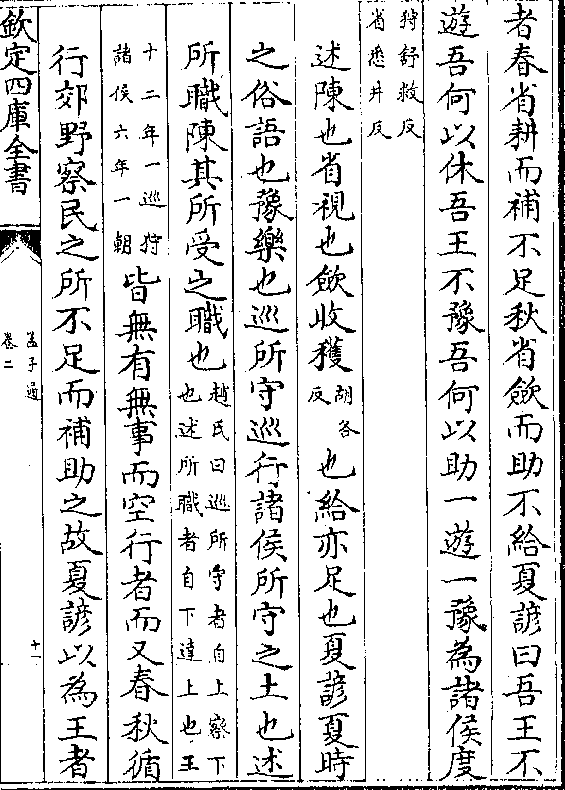 者春省耕而補不足秋省斂而助不給夏諺曰吾王不
遊吾何以休吾王不豫吾何以助一遊一豫為諸侯度
狩舒救反
省悉井反
述陳也省視也斂收穫
胡各
反
也給亦足也夏諺夏時
之俗語也豫樂也巡所守巡行諸侯所守之土也述
所職陳其所受之職也
趙氏曰巡所守者自上察下
也述所職者自下達上也王
十二年一巡狩
諸侯六年一朝
皆無有無事而空行者而又春秋循
行郊野察民之所不足而補助之故夏諺以為王者
欽定四庫全書
孟子通
卷二
十一